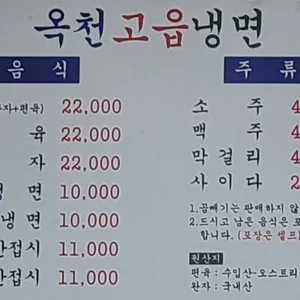 옥천고읍냉면
음 식
주 류
자+편육) 22,000
육 22,000
자 22,000
냉 면 10,000
냉 면 10,000
반접시 11,000
반접시 11,000
소 주 4
맥 주 4
막걸리 4
사이다 2
1.곱빼기는 판매하지 않
2.드시고 남은 음식은 포
합니다. (포장은 셀프)
원산지
편육 : 수입산-오스트리
완자 : 국내산